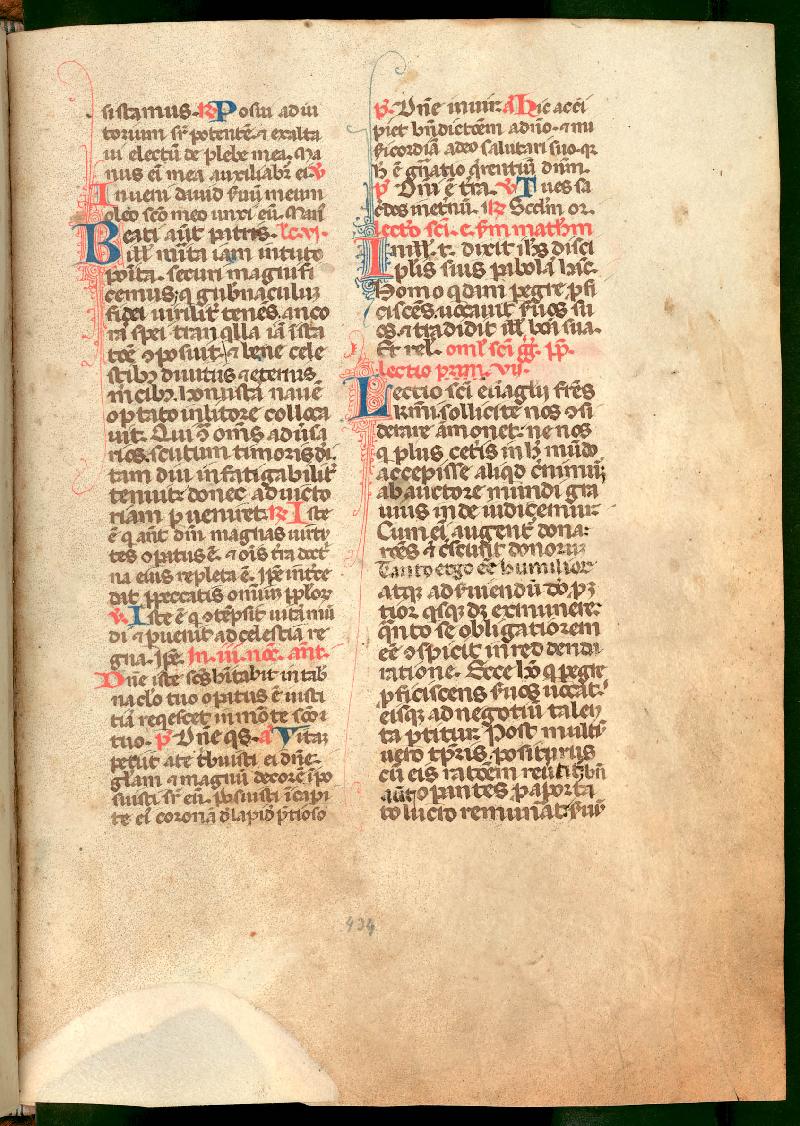 sistamus. ℟ Posui adiu
torium sr̄ potentē ⁊ exalta
ui electū de plebe mea. Ma
nus ei᷒ mea auxiliabr̄ ei. ℣
Inueni dauid ẜuū meum
oleo scō meo unxi eū. Man᷒
Beati aūt patris. lc. vi.
illi᷒ mīta iam in tuto
poīta. securi magnifi
cemus; q gubnaculū
fidei uirilit᷑ tenēs. anco
rā spei tranqͥlla iā ī sta
tōe ꝯposuit. ⁊ plenē cele
stibꝫ diuitiis ⁊ eternis
m̄cibꝫ. honustā nauē
optato in litore colloca
uit. Qui ꝯͣ om̄s aduīsa
rios. scutum timoris di.
tam diu infatigabilit᷑
tenuit: donec ad uicto
riam ꝑueniret. ℟ Iste
ē q̄ an̄t dm̄ magnas uirtu
tes oꝑatus ē. ⁊ oīs t̄ra doct̄
na eius repleta ē. Ip̄e int̄ce
dat ꝓ peccatis omniū pplōꝝ
℣ Iste ē q̄ ꝯtēpsit uitā mū
di ⁊ ꝑuenit ad celestia re
gna. Ip̄e. In. iii. noc̄. an̄t.
Dn̄e iste scs̄ hītabit in tab̄
naclo tuo oꝑatus ē iusti
tiā reqͥescet in mōte scō
tuo. p̄ Dn̄e qͥs. a᷒ Vitaꝫ
petiit a te tͥbuisti ei dn̄e:
gl̄am ⁊ magnū decorē īpo
suisti sr̄ eū. Posuisti ī capi
te ei᷒ coronā d̄ lapid̄ p̄tioso
p̄. Dn̄e in uir. a᷒ Hic acci
piet bn̄dictōem a dn̄o. ⁊ mi
sericordiā a deo salutari suo. qꝛ
h̄ ē gn̄atio q̄rentiū dn̄m.
p̄ Dn̄i ē t̄ra. ℣ Tu es sa
c̄dos in et̄nū. ℟ Scd̄m or.
lectō scī. e. sm̄ math̄m
In ill. t. dixit ih̄s disci
pl̄is suis ꝑabolā hāc.
Homo qͥdam pegre ꝓfi
ciscēs. uocauit ẜuos su
os. ⁊ tradidit ill᷒ bōa sua.
Et rel. oml̄. scī gͥg. pp̄.
lectio prim. vii.
Lectio scī euāglii frēs
k̄mi. sollicite nos ꝯsi
derare āmonet: ne nos
q̄ plus cet̄is in h̄ mūdo
accepisse aliqͥd c̄nimur;
ab auctore mundi gra
uius inde iudicemur.
Cum ei᷒ augent᷑ dona:
rōes ⁊ c̄scūt donoꝝ
Tanto ergo eē humilior
atqꝫ ad ẜuiendū d̄o pꝫ
tior qͥsqꝫ dꝫ ex munere:
qn̄to se obligatiorem
eē ꝯspicit in reddenda
ratione. Ecce hō q̄ pegre
ꝓficiscens ẜuos uocat.
eisqꝫ ad negotiū talen
ta ꝑtitur. Post multū
uero tp̄ris. positurus
cū eis ratōem reūtit̄. bn̄
aūt oꝑantes ꝓ aporta
to lucro remun̄at. ẜuū
434